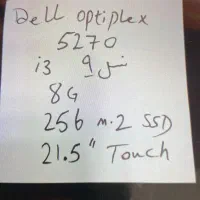 Dell optiplex
5270
i3 نسل 9
8G
256 m.2 SSD
21.5" Touch